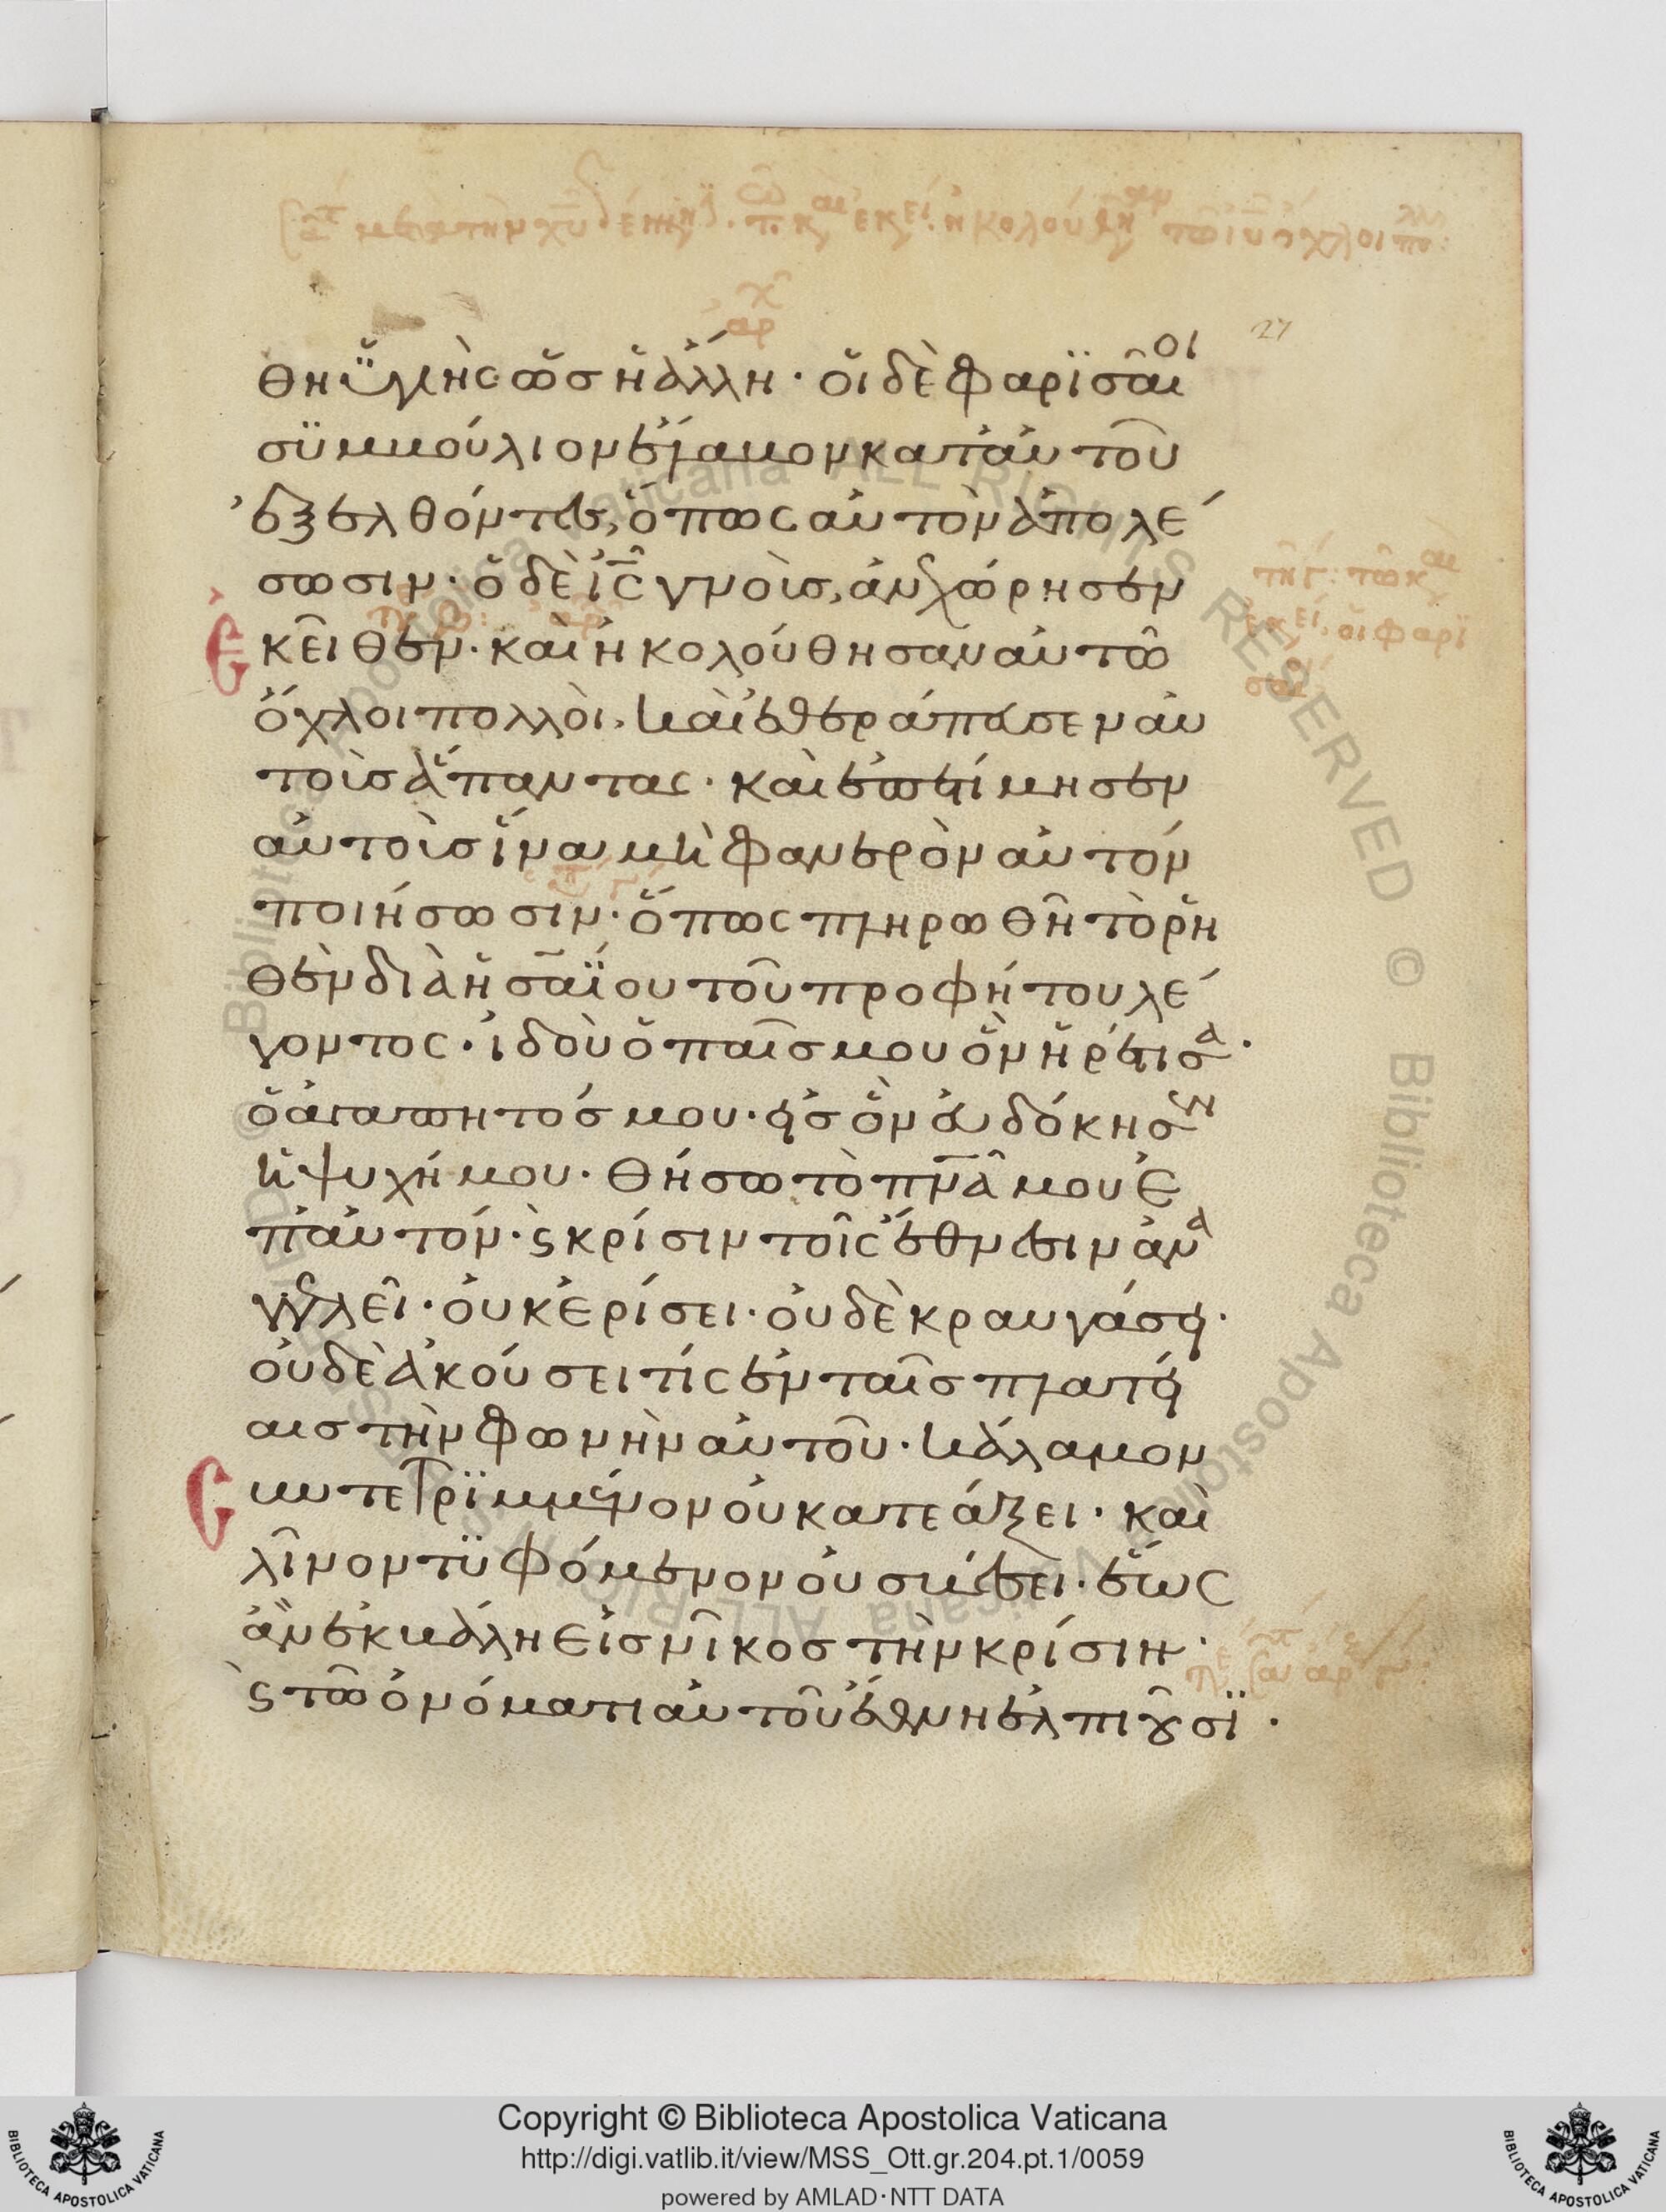 θη ὑγιὴς ὡς ἡ ἄλλη · οἱ δὲ φαρϊσαῖοι
συμβούλιον ἔλαβον κατ' αὐτοῦ
ἐξελθόντες, ὅπως αὐτὸν ἀπολέ
σωσιν · ὁ δὲ ἰς γνοὺς, ἀνεχώρησεν
ἐκεῖθεν · καὶ ἠκολούθησαν αὐτῶ
ὄχλοι πολλοὶ, καὶ ἐθεράπευσεν αὐ
τοὺς ἅπαντας · καὶ ἐπετίμησεν
αὐτοὺς ἵνα μὴ φανερὸν αὐτόν
ποιήσωσιν · ὅπως πληρωθῆ τὸ ρη
θὲν διὰ ἡσαΐου τοῦ προφήτου λέ
γοντος · ἰδοὺ ὁ παῖς μου ὃν ἡρέτισα ·
ὁ ἀγαπητός μου · εἰς ὃν εὐδόκησεν
ἡ ψυχή μου · θήσω τὸ πνα μου ἐ
π' αὐτόν · ϛ κρίσιν τοῖς ἔθνεσιν ἀπα
γγελεῖ · οὐκ ἐρίσει · οὐδὲ κραυγάσει ·
οὐδὲ ἀκούσει τίς ἐν ταῖς πλατεί
αις τὴν φωνὴν αὐτοῦ · κάλαμον
συντετριμμένον οὐ κατεάξει · καὶ
λῖνον τϋφόμενον οὐ σβέσει · ἕως
ἂν ἐκβάλη εἰς νῖκος τὴν κρίσιν ·
ϛ τῶ ὀνόματι αὐτοῦ ἔθνη ἐλπιοῦσϊ ·
Copyright © Biblioteca Apostolica Vaticana
http://digi.vatlib.it/view/MSS_Ott.gr.204.pt.1/0059
powered by AMLAD·NTT DATA